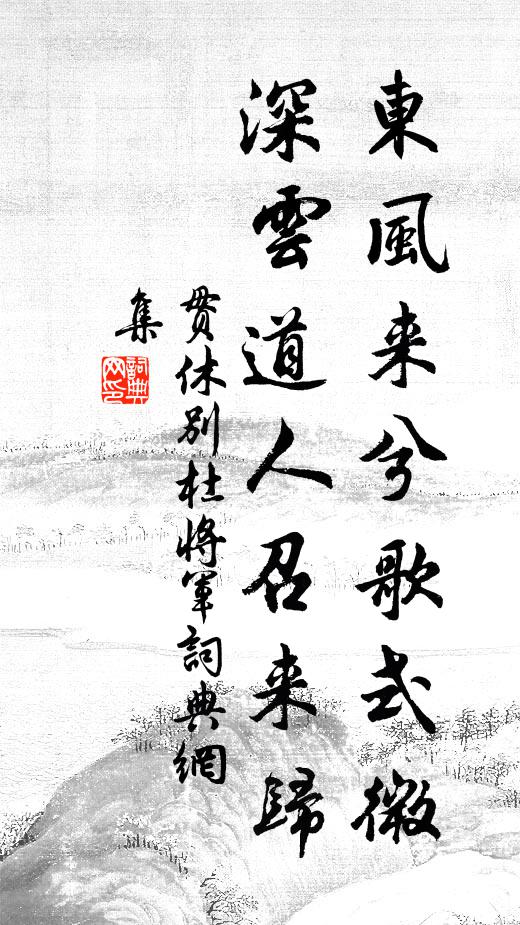 東風来兮歌式微
深雲道人召来歸
貫休別杜將軍詞典網
集
詞典網印